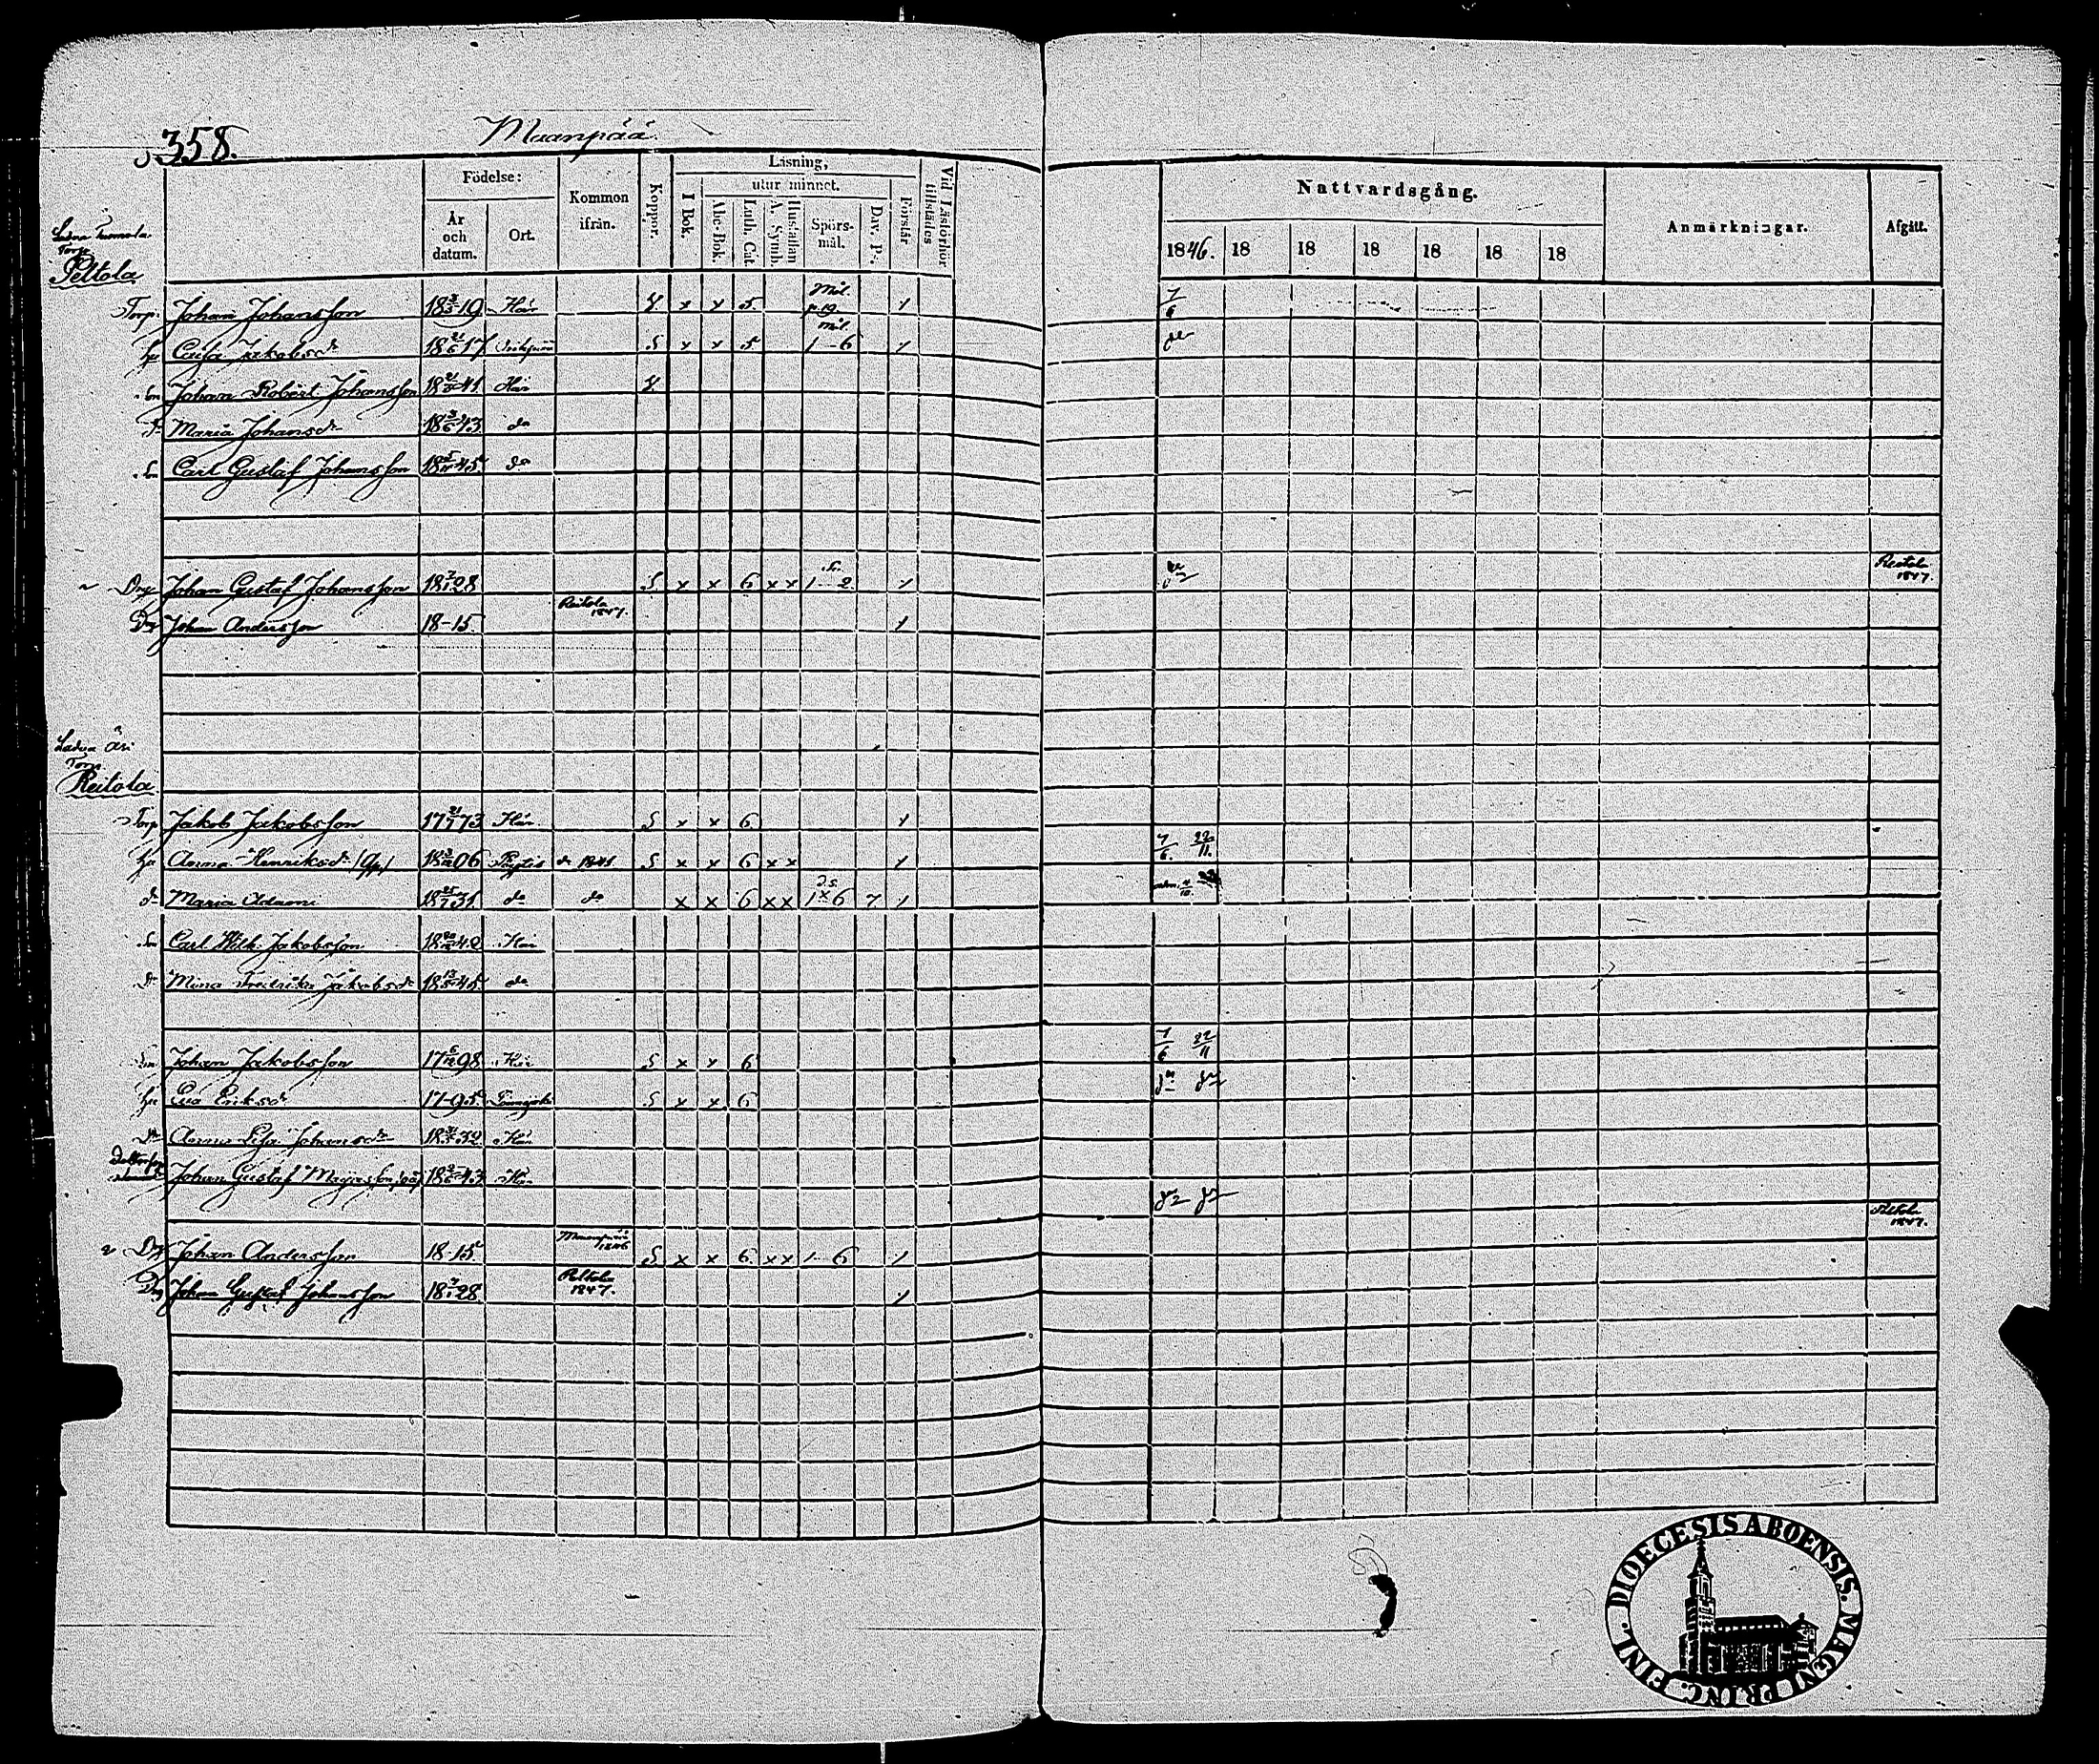 358.
Maanpää.
Födelse:
Läsning,
utur minnet.
År och datum.
Ort.
Kommon ifrån.
Koppor.
I Bok.
Abc-Bok.
Luth. Cat.
A. Symb.
Hustaflan
Spörs-mål.
Dav. Ps.
Förstår
Vid Läsförhör tillstädes
Nattvardsgång.
1846. 18 18 18 18 18 18
Anmärkningar.
Afgått.
Torp
Peltola
Torp. Johan Johansson 18 19 Här x x 5 1 7/6
hu Caisa Jakobsdr 18 17 S x x 5 1-6 1 do
son Johan Robert Johansson 18 41 Här
dr Maria Johansdr 18 43 do
son Carl Gustaf Johansson 18 45 do
Drg Johan Gustaf Johansson 18 28 S x x 6 x x 1-2 1 Reitola 1847.
Drg Johan Andersson 18-15. Reitola 1847. 1
Torp.
Reitola
Torp Jakob Jakobsson 17 73 Här S x x 6 1
hu Anna Henriksdr 18 06 do 1841 S x x 6 x x 1 7/6. 22/11.
dr Maria 18 25/1 31. do do x x 6 x x 1 x 6 7 1
son Carl Wilh. Jakobsson 18 42 Här
dr Mina Fredrika Jakobsdr 18 13 45 do
son Johan Jakobsson 17 98 Här S x x 6 7/6 22/11
hu Eva Eriksdr 17-95 S x x 6
dr Anna Lisa Johansdr 18 32 Här
Johan Gustaf 18 43 Här
Drg Johan Andersson 18-15 Maanpää 1846 S x x 6 x x 1-6 1 Peltola 1847.
Drg Johan Gustaf Johansson 18 28 Peltola 1847. 1
DIOECESIS ABOENSIS. MAGNI PRINC. FINL.